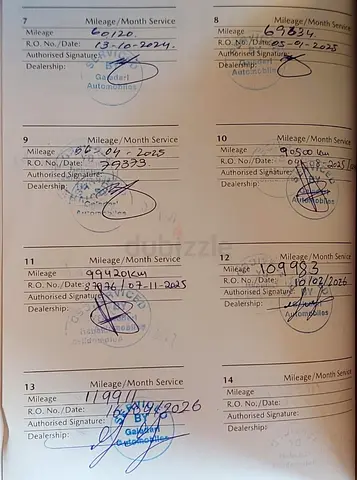 7 Mileage/Month Service
Mileage 60120
R.O. No./Date: 13-10-2024.
Authorised Signature:
Dealership:
SERVICED
BY
Galadari
Automobiles
8 Mileage/Month Service
Mileage 69834
R.O. No./Date: 05-01-2025
Authorised Signature:
Dealership:
Automobiles
9 Mileage/Month Service
Mileage 04-2025
R.O. No./Date: 79373
Authorised Signature:
Dealership:
Galadari
Automobiles
10 Mileage/Month Service
Mileage 90500 km
R.O. No./Date: 08-2025
Authorised Signature:
Dealership:
Automobiles
dubizzle
11 Mileage/Month Service
Mileage 99420km
R.O. No./Date: 07-11-2025
Authorised Signature:
Dealership:
SERVICED
12 Mileage/Month Service
Mileage 109983
R.O. No./Date: 10/02/2026
Authorised Signature:
Dealership:
Automobiles
13 Mileage/Month Service
Mileage 119911
R.O. No./Date: 2026
Authorised Signature:
Dealership:
BY
Galadari
Automobiles
14 Mileage/Month Service
Mileage
R.O. No./Date:
Authorised Signature:
Dealership: